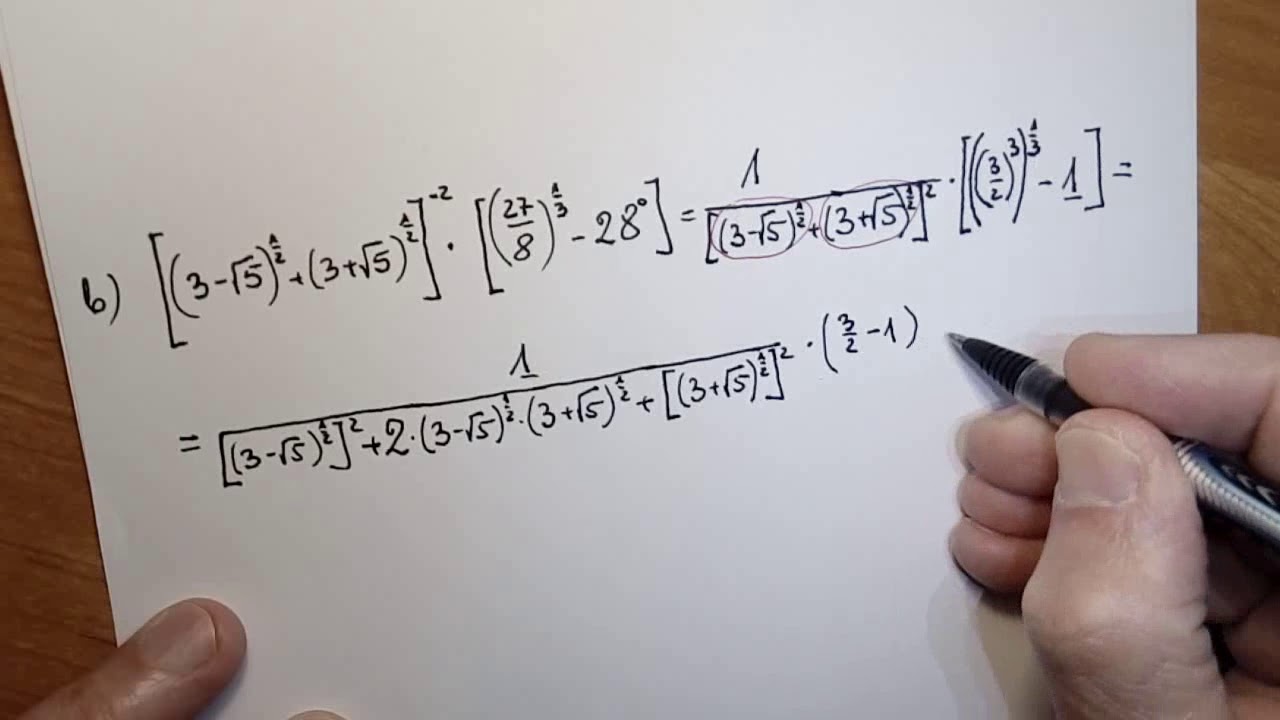 b) [(3-√5)^(1/2) + (3+√5)^(1/2)]^(-2) · [(27/8)^(1/3) - 28°] = 1/[(3-√5)^(1/2) + (3+√5)^(1/2)]^2 · [((3/2)^3)^(1/3) - 1] =
= 1/([(3-√5)^(1/2)]^2 + 2·(3-√5)^(1/2)·(3+√5)^(1/2) + [(3+√5)^(1/2)]^2) · (3/2 - 1)